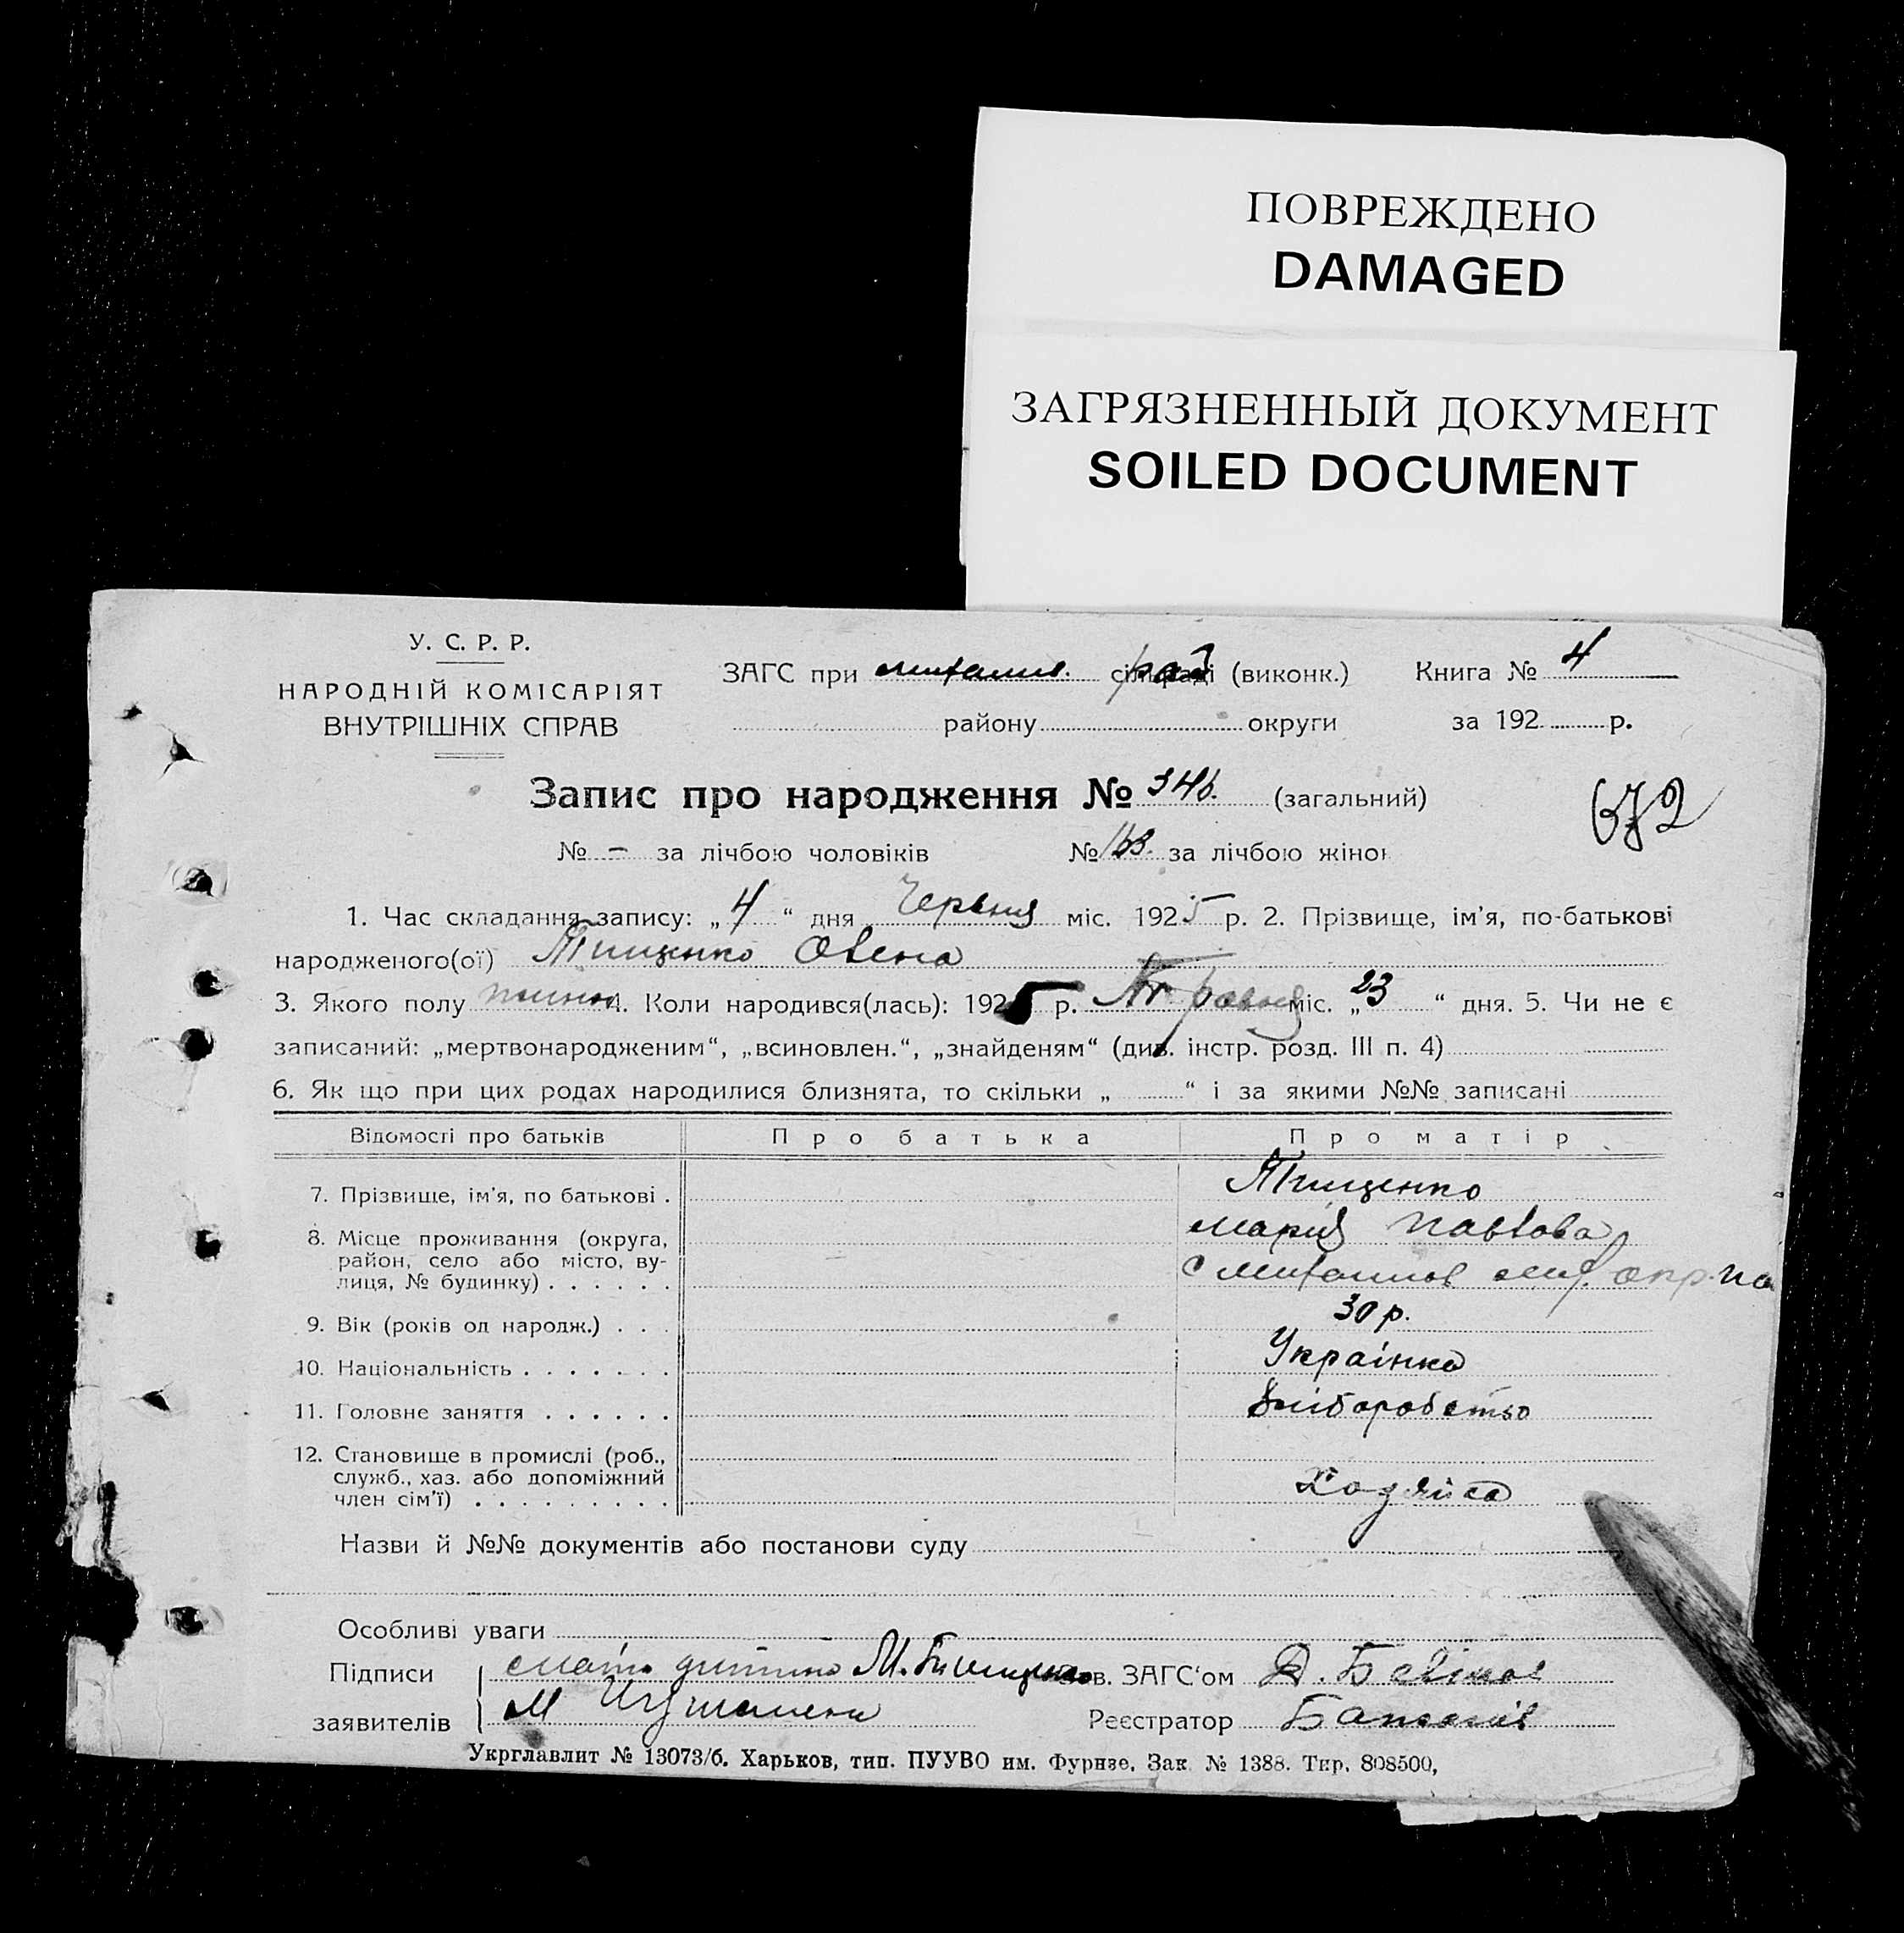 ПОВРЕЖДЕНО
DAMAGED
ЗАГРЯЗНЕННЫЙ ДОКУМЕНТ
SOILED DOCUMENT
У. С. Р. Р.
НАРОДНІЙ КОМІСАРІЯТ
ВНУТРІШНІХ СПРАВ
ЗАГС при сільраді (виконк.) Книга № 4
району округи за 192 р.
Запис про народження № 346. (загальний)
672
№ – за лічбою чоловіків № 163. за лічбою жінок
1. Час складання запису: „ 4 “ дня Червня міс. 1925 р. 2. Прізвище, ім'я, по-батькові
народженого(ої) Тищенко Олена
3. Якого полу 4. Коли народився(лась): 1925 р. Травня міс. „ 23 “ дня. 5. Чи не є
записаний: „мертвонародженим“, „всиновлен.“, „знайденям“ (див. інстр. розд. III п. 4)
6. Як що при цих родах народилися близнята, то скільки „ “ і за якими №№ записані
Відомості про батьків Про батька Про матір
7. Прізвище, ім'я, по батькові . Тищенко
8. Місце проживання (округа, Мария Павлова
район, село або місто, ву-
лиця, № будинку) . . . . . .
9. Вік (років од народж.) . . . 30 р.
10. Національність . . . . . . . Українка
11. Головне заняття . . . . . . хліборобство
12. Становище в промислі (роб.,
служб., хаз. або допоміжний
член сім'ї) . . . . . . . . . Хазяйка
Назви й №№ документів або постанови суду
Особливі уваги
Підписи мати дитини М. Тищенко Зав. ЗАГС‘ом
заявителів М Реєстратор
Укрглавлит № 13073/б. Харьков, тип. ПУУВО им. Фурнзе, Зак. № 1388. Тир. 808500,